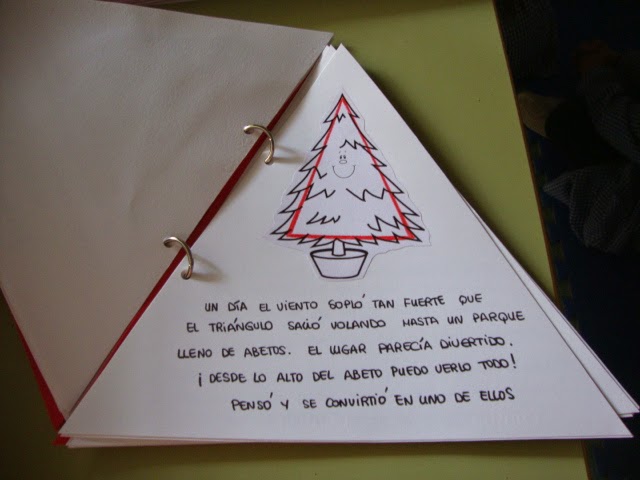 UN DÍA EL VIENTO SOPLÓ TAN FUERTE QUE
EL TRIÁNGULO SALIÓ VOLANDO HASTA UN PARQUE
LLENO DE ABETOS. EL LUGAR PARECÍA DIVERTIDO.
¡DESDE LO ALTO DEL ABETO PUEDO VERLO TODO!
PENSÓ Y SE CONVIRTIÓ EN UNO DE ELLOS